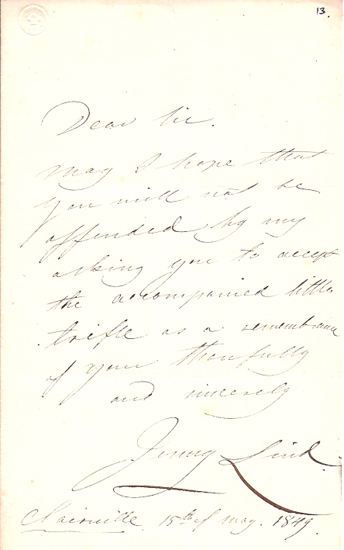 13.
Dear Sir.
May I hope that
you will not be
offended by my
asking you to accept
the accompanied little
trifle as a remembrance
of your thankfully
and sincerely
Jenny Lind.
Clairville 15th of May. 1849.